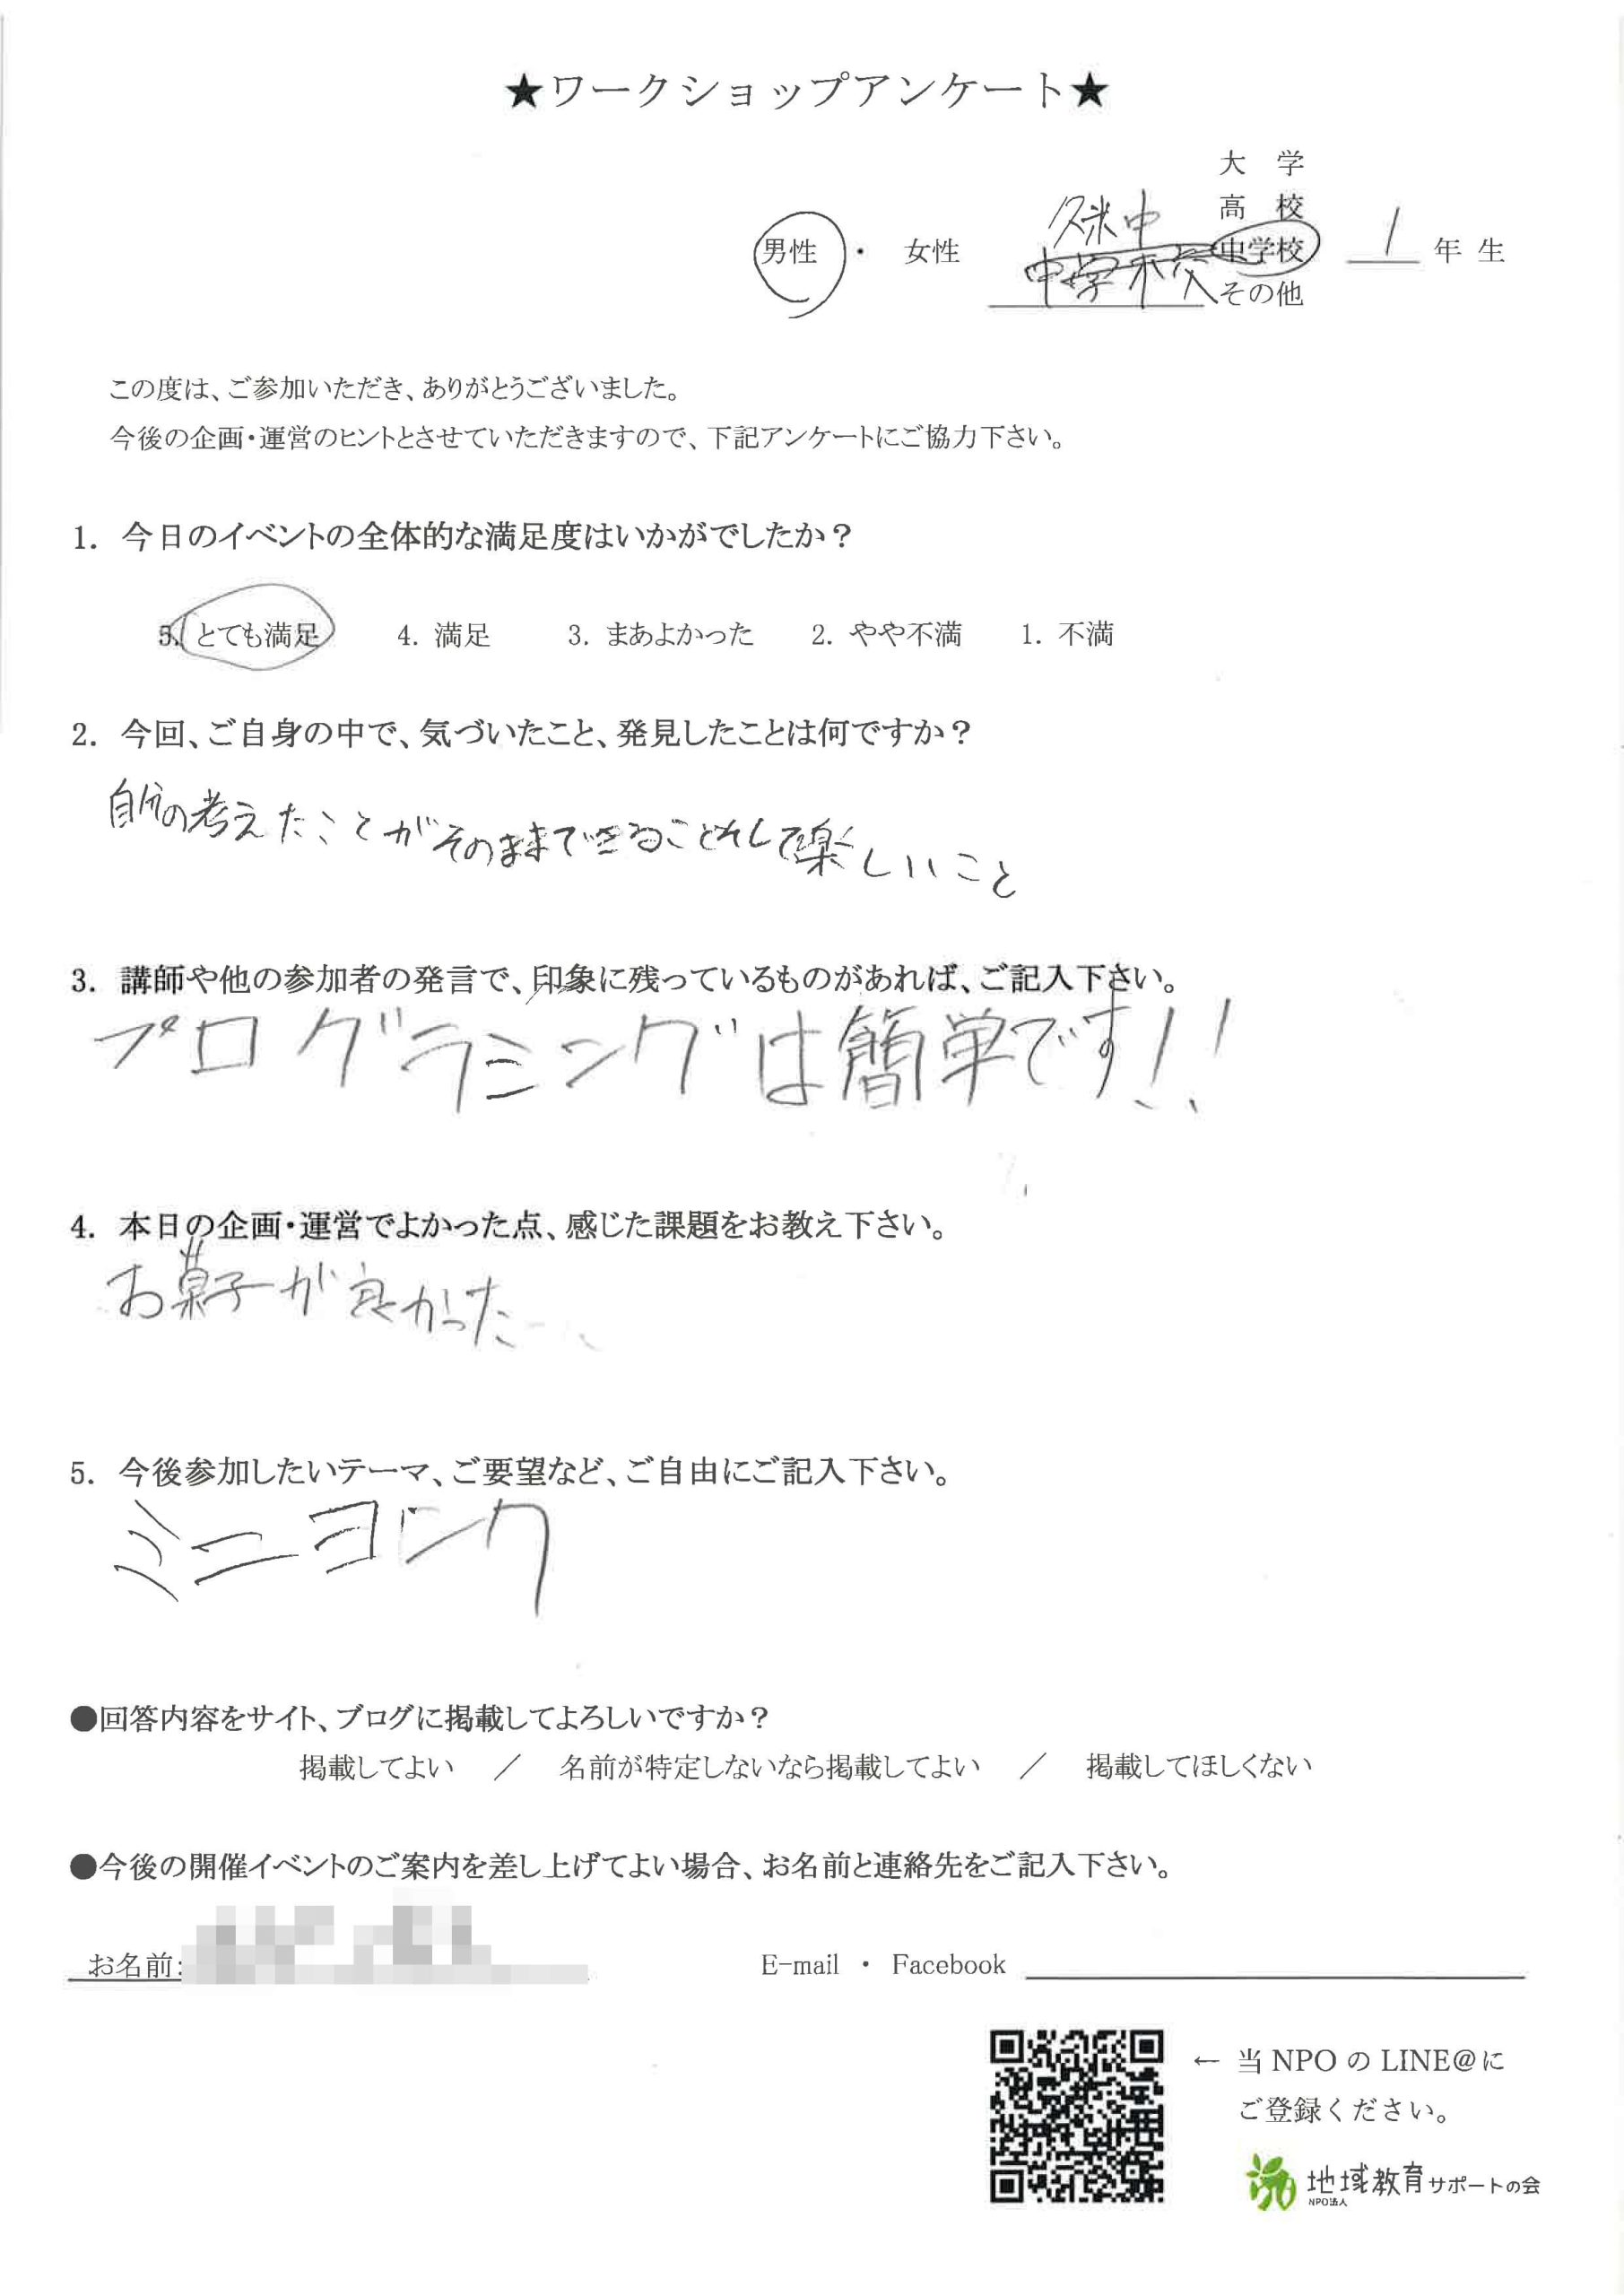 ★ワークショップアンケート★
大 学
高 校
久米中
男性 ・ 女性 中学校 中学校 1 年 生
その他
この度は、ご参加いただき、ありがとうございました。
今後の企画・運営のヒントとさせていただきますので、下記アンケートにご協力下さい。
1. 今日のイベントの全体的な満足度はいかがでしたか？
5. とても満足 4. 満足 3. まあよかった 2. やや不満 1. 不満
2. 今回、ご自身の中で、気づいたこと、発見したことは何ですか？
自分の考えたことがそのままできることれして楽しいこと
3. 講師や他の参加者の発言で、印象に残っているものがあれば、ご記入下さい。
プログラミングは簡単です！！
4. 本日の企画・運営でよかった点、感じた課題をお教え下さい。
お菓子が良かった
5. 今後参加したいテーマ、ご要望など、ご自由にご記入下さい。
ミニヨンク
●回答内容をサイト、ブログに掲載してよろしいですか？
掲載してよい ／ 名前が特定しないなら掲載してよい ／ 掲載してほしくない
●今後の開催イベントのご案内を差し上げてよい場合、お名前と連絡先をご記入下さい。
お名前: E-mail ・ Facebook
← 当 NPO の LINE@に
ご登録ください。
地域教育サポートの会
NPO法人